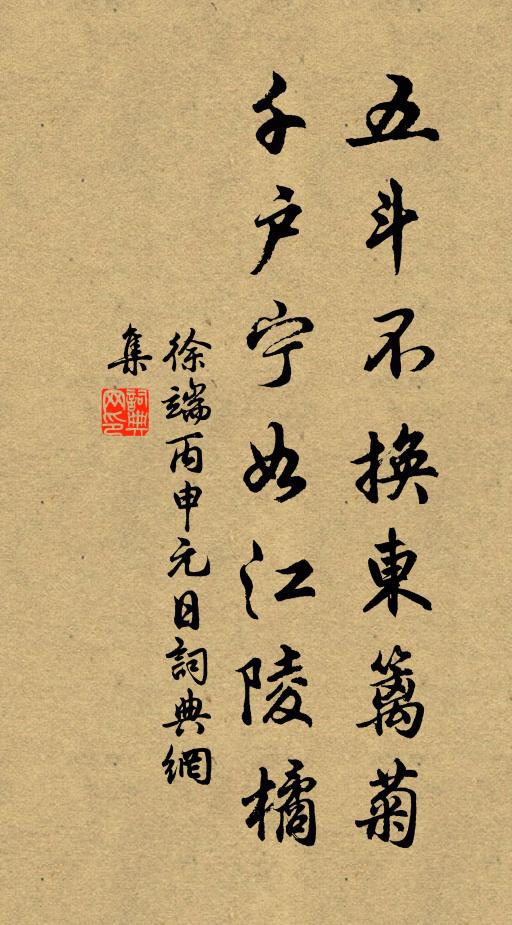 五斗不換東籬菊
千户宁如江陵橘
徐端丙申元日詞典網
集
詞典
网印